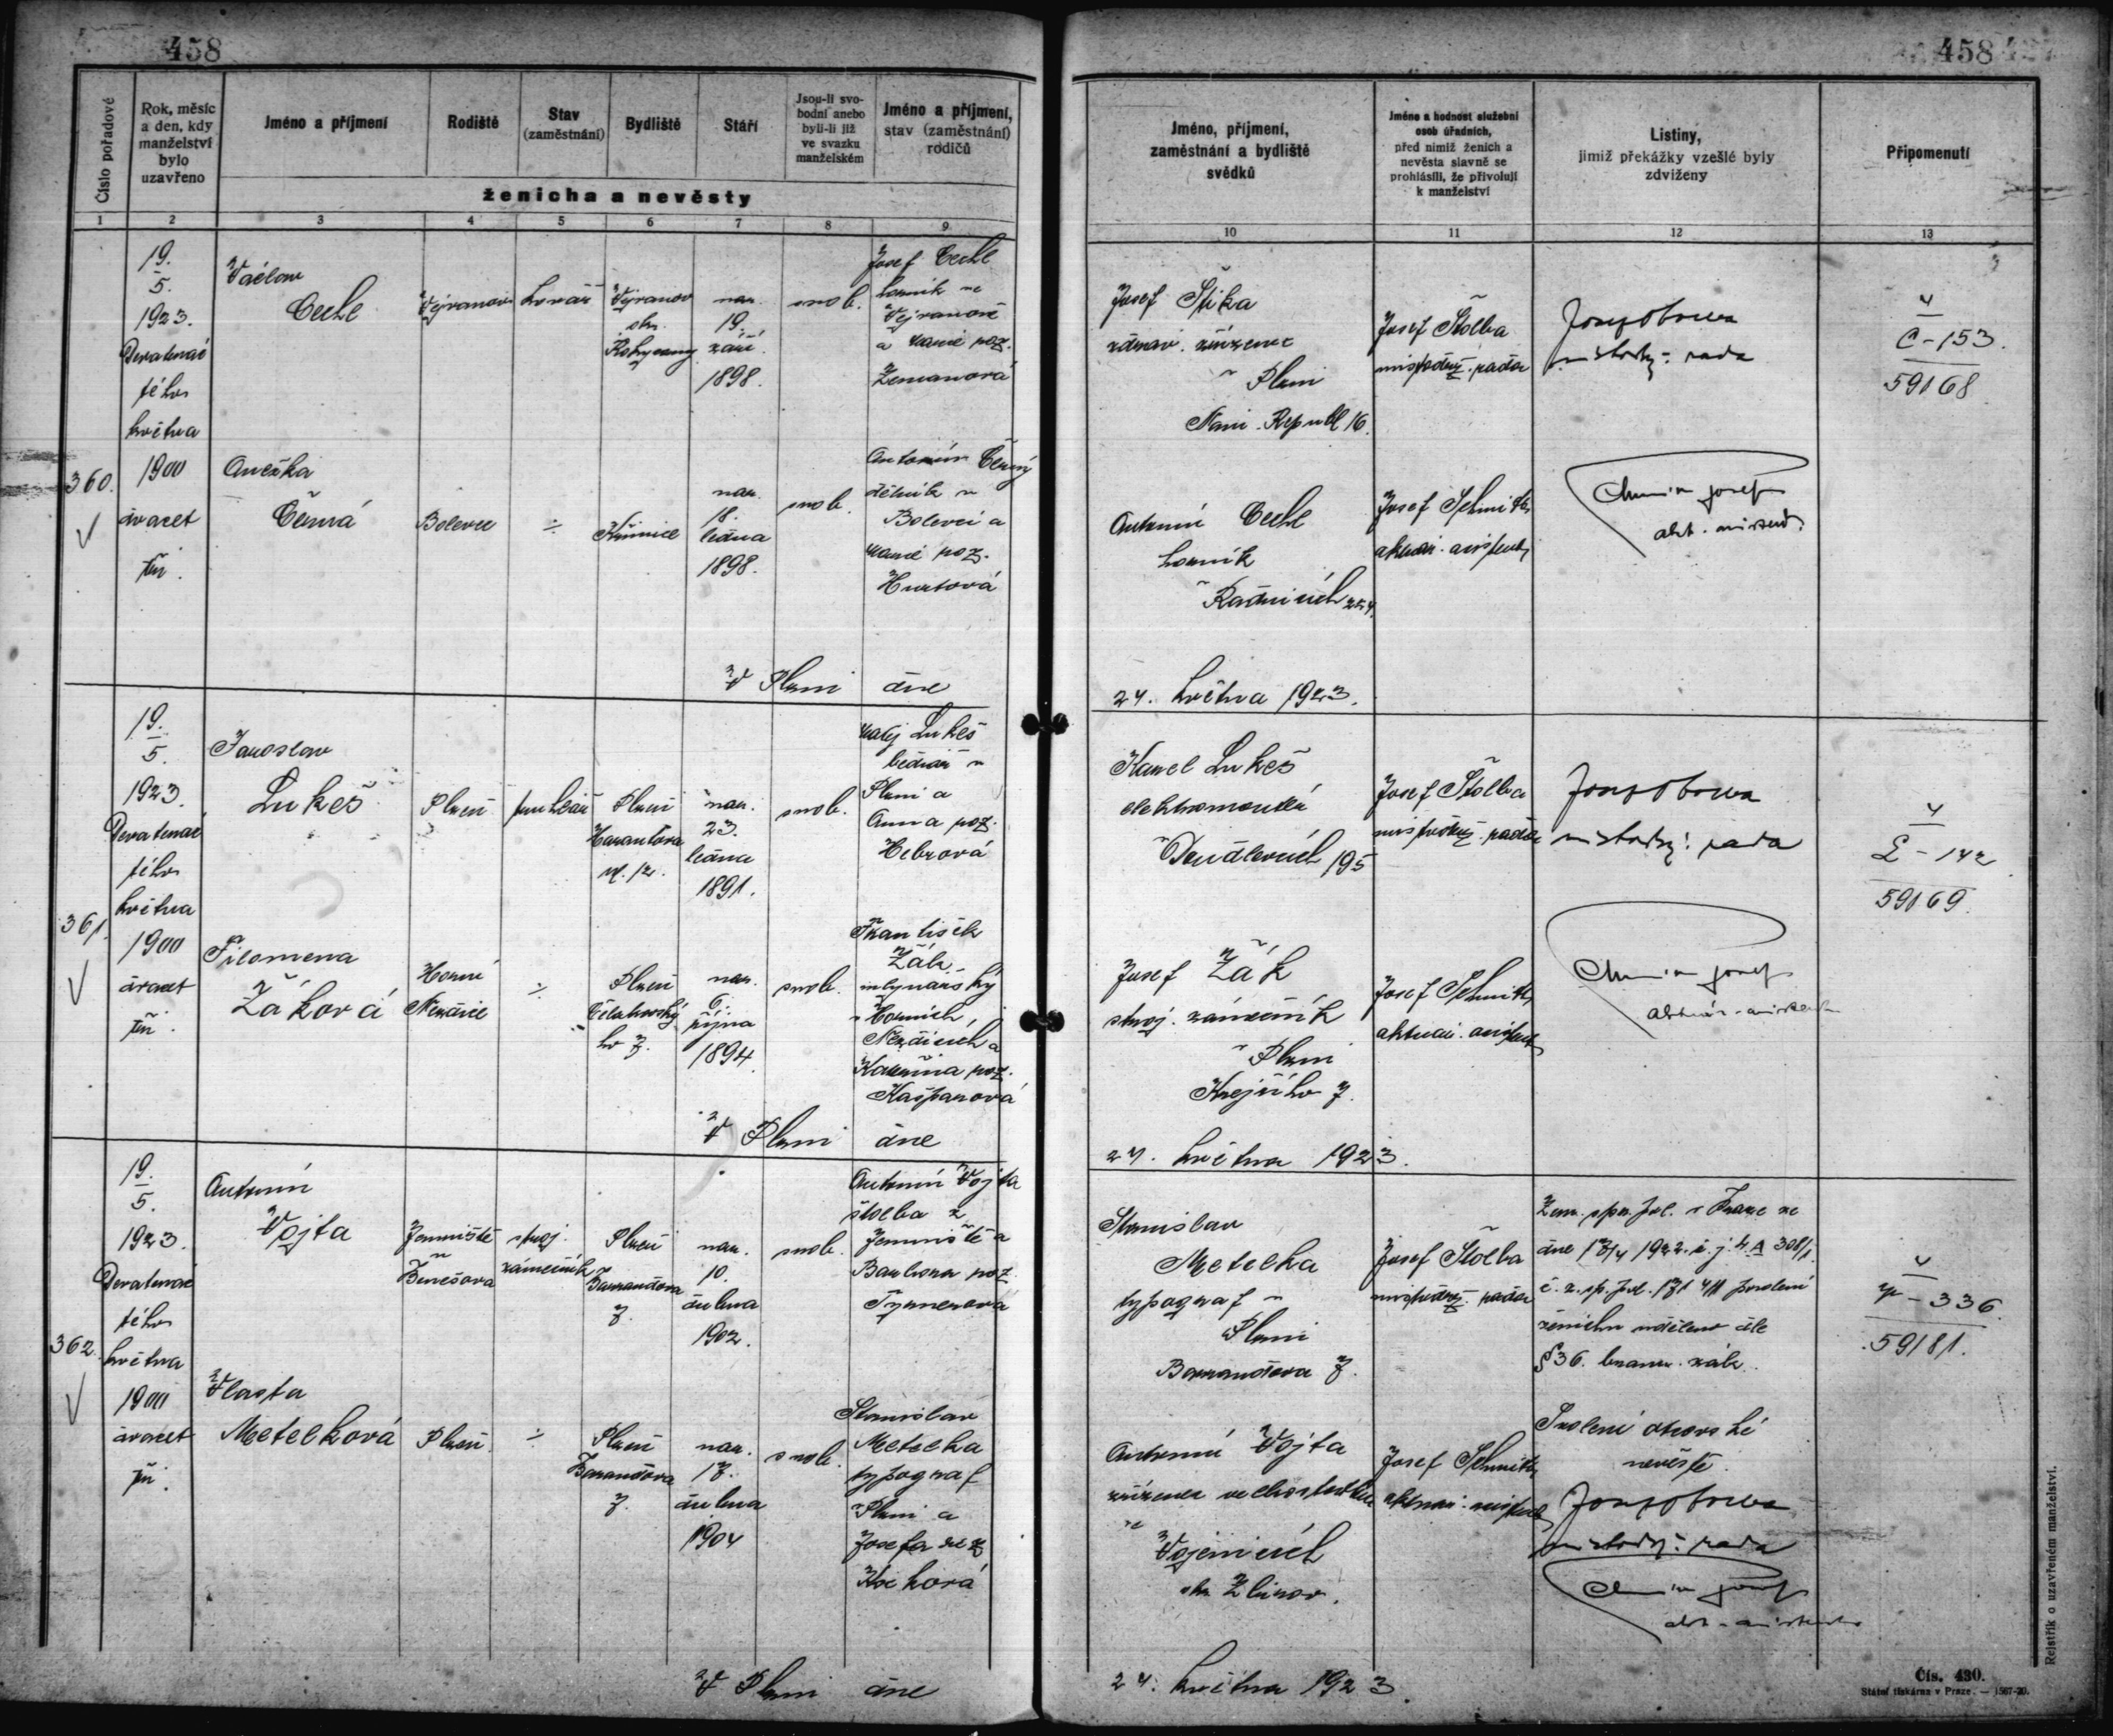 458
Číslo pořadové
Rok, měsíc
a den, kdy
manželství
bylo
uzavřeno
Jméno a příjmení
Rodiště
Stav
(zaměstnání)
Bydliště
Stáří
Jsou-li svo-
bodní anebo
byli-li již
ve svazku
manželském
Jméno a příjmení,
stav (zaměstnání)
rodičů
ženicha a nevěsty
1 2 3 4 5 6 7 8 9
19.
5.
1923.
Devatenác
tého
května
1900
dvacet
tři.
360.
Václav
Cechl
Vejvanov
kovář
Vejvanov
okr.
Rokycany
nar.
19.
září
1898.
svob.
Josef Cechl
horník ve
Vejvanově
a
roz.
Zemanová
Anežka
Černá
Bolevec
÷
Křimice
nar.
18.
ledna
1898.
svob.
Antonín Černý
dělník v
Bolevci a
roz.
Hurtová
V Plzni dne
19.
5.
1923.
Devatenác
tého
května
1900
dvacet
tři.
361.
Jaroslav
Lukeš
Plzeň
truhlář
Plzeň
Harantova
ul. 12.
nar.
23.
ledna
1891.
svob.
Matěj Lukeš
bednář v
Plzni a
Anna roz.
Hebrová
Filomena
Žáková
Horní
Nezdice
÷
Plzeň
Čelakovský
ho 7.
nar.
6.
října
1894.
svob.
František
Žák
mlynářský
v Horních
Nezdicích a
Kateřina roz.
Kašparová
V Plzni dne
19.
5.
1923.
Devatenác
tého
května
1900
dvacet
tři.
362.
Antonín
Vojta
Jemniště
u
Benešova
stroj.
zámečník
Plzeň
Barrandova
7.
nar.
10.
dubna
1902.
svob.
Antonín Vojta
štolba z
Jemniště a
Barbora roz.
Vlasta
Metelková
Plzeň
÷
Plzeň
Barrandova
7.
nar.
17.
dubna
1904
svob.
Stanislav
Metelka
typograf
v Plzni a
Josefa roz.
V Plzni dne
458
Jméno, příjmení,
zaměstnání a bydliště
svědků
Jméno a hodnost služební
osob úřadních,
před nimiž ženich a
nevěsta slavně se
prohlásili, že přivolují
k manželství
Listiny,
jimiž překážky vzešlé byly
zdviženy
Připomenutí
10 11 12 13
Josef Šlika
zdrav. zřízenec
v Plzni
Nám. Republ 16.
Josef Štolba
místodrž. rada
místodrž. rada
4
C-153.
59168
Antonín Cechl
horník
v Radnicích 254
Josef Schmidt
aktuár. asistent
24. května 1923.
Karel Lukeš
elektromontér
v Doudlevcích 195
Josef Štolba
místodrž. rada
místodrž. rada
4
L-142
59169.
Josef Žák
stroj. zámečník
v Plzni
Krejčího 7.
Josef Schmidt
aktuár. asistent
24. května 1923.
Stanislav
Metelka
typograf v
Plzni
Barrandova 7.
Josef Štolba
místodrž. rada
Zem. spr. pol. v Praze ze
dne 17/4 1922. č. j. 4. A 308/1
ženichu uděleno dle
§ 36. branné. zák.
4
V-336
59181.
Antonín Vojta
zřízenec velkostatku
ve
Vejenicích
okr. Zbirov.
Josef Schmidt
aktuár. asistent
Svolení otcovské
nevěstě.
místodrž. rada
24. května 1923.
Rejstřík o uzavřeném manželství.
Čís. 430.
Státní tiskárna v Praze. — 1567-20.